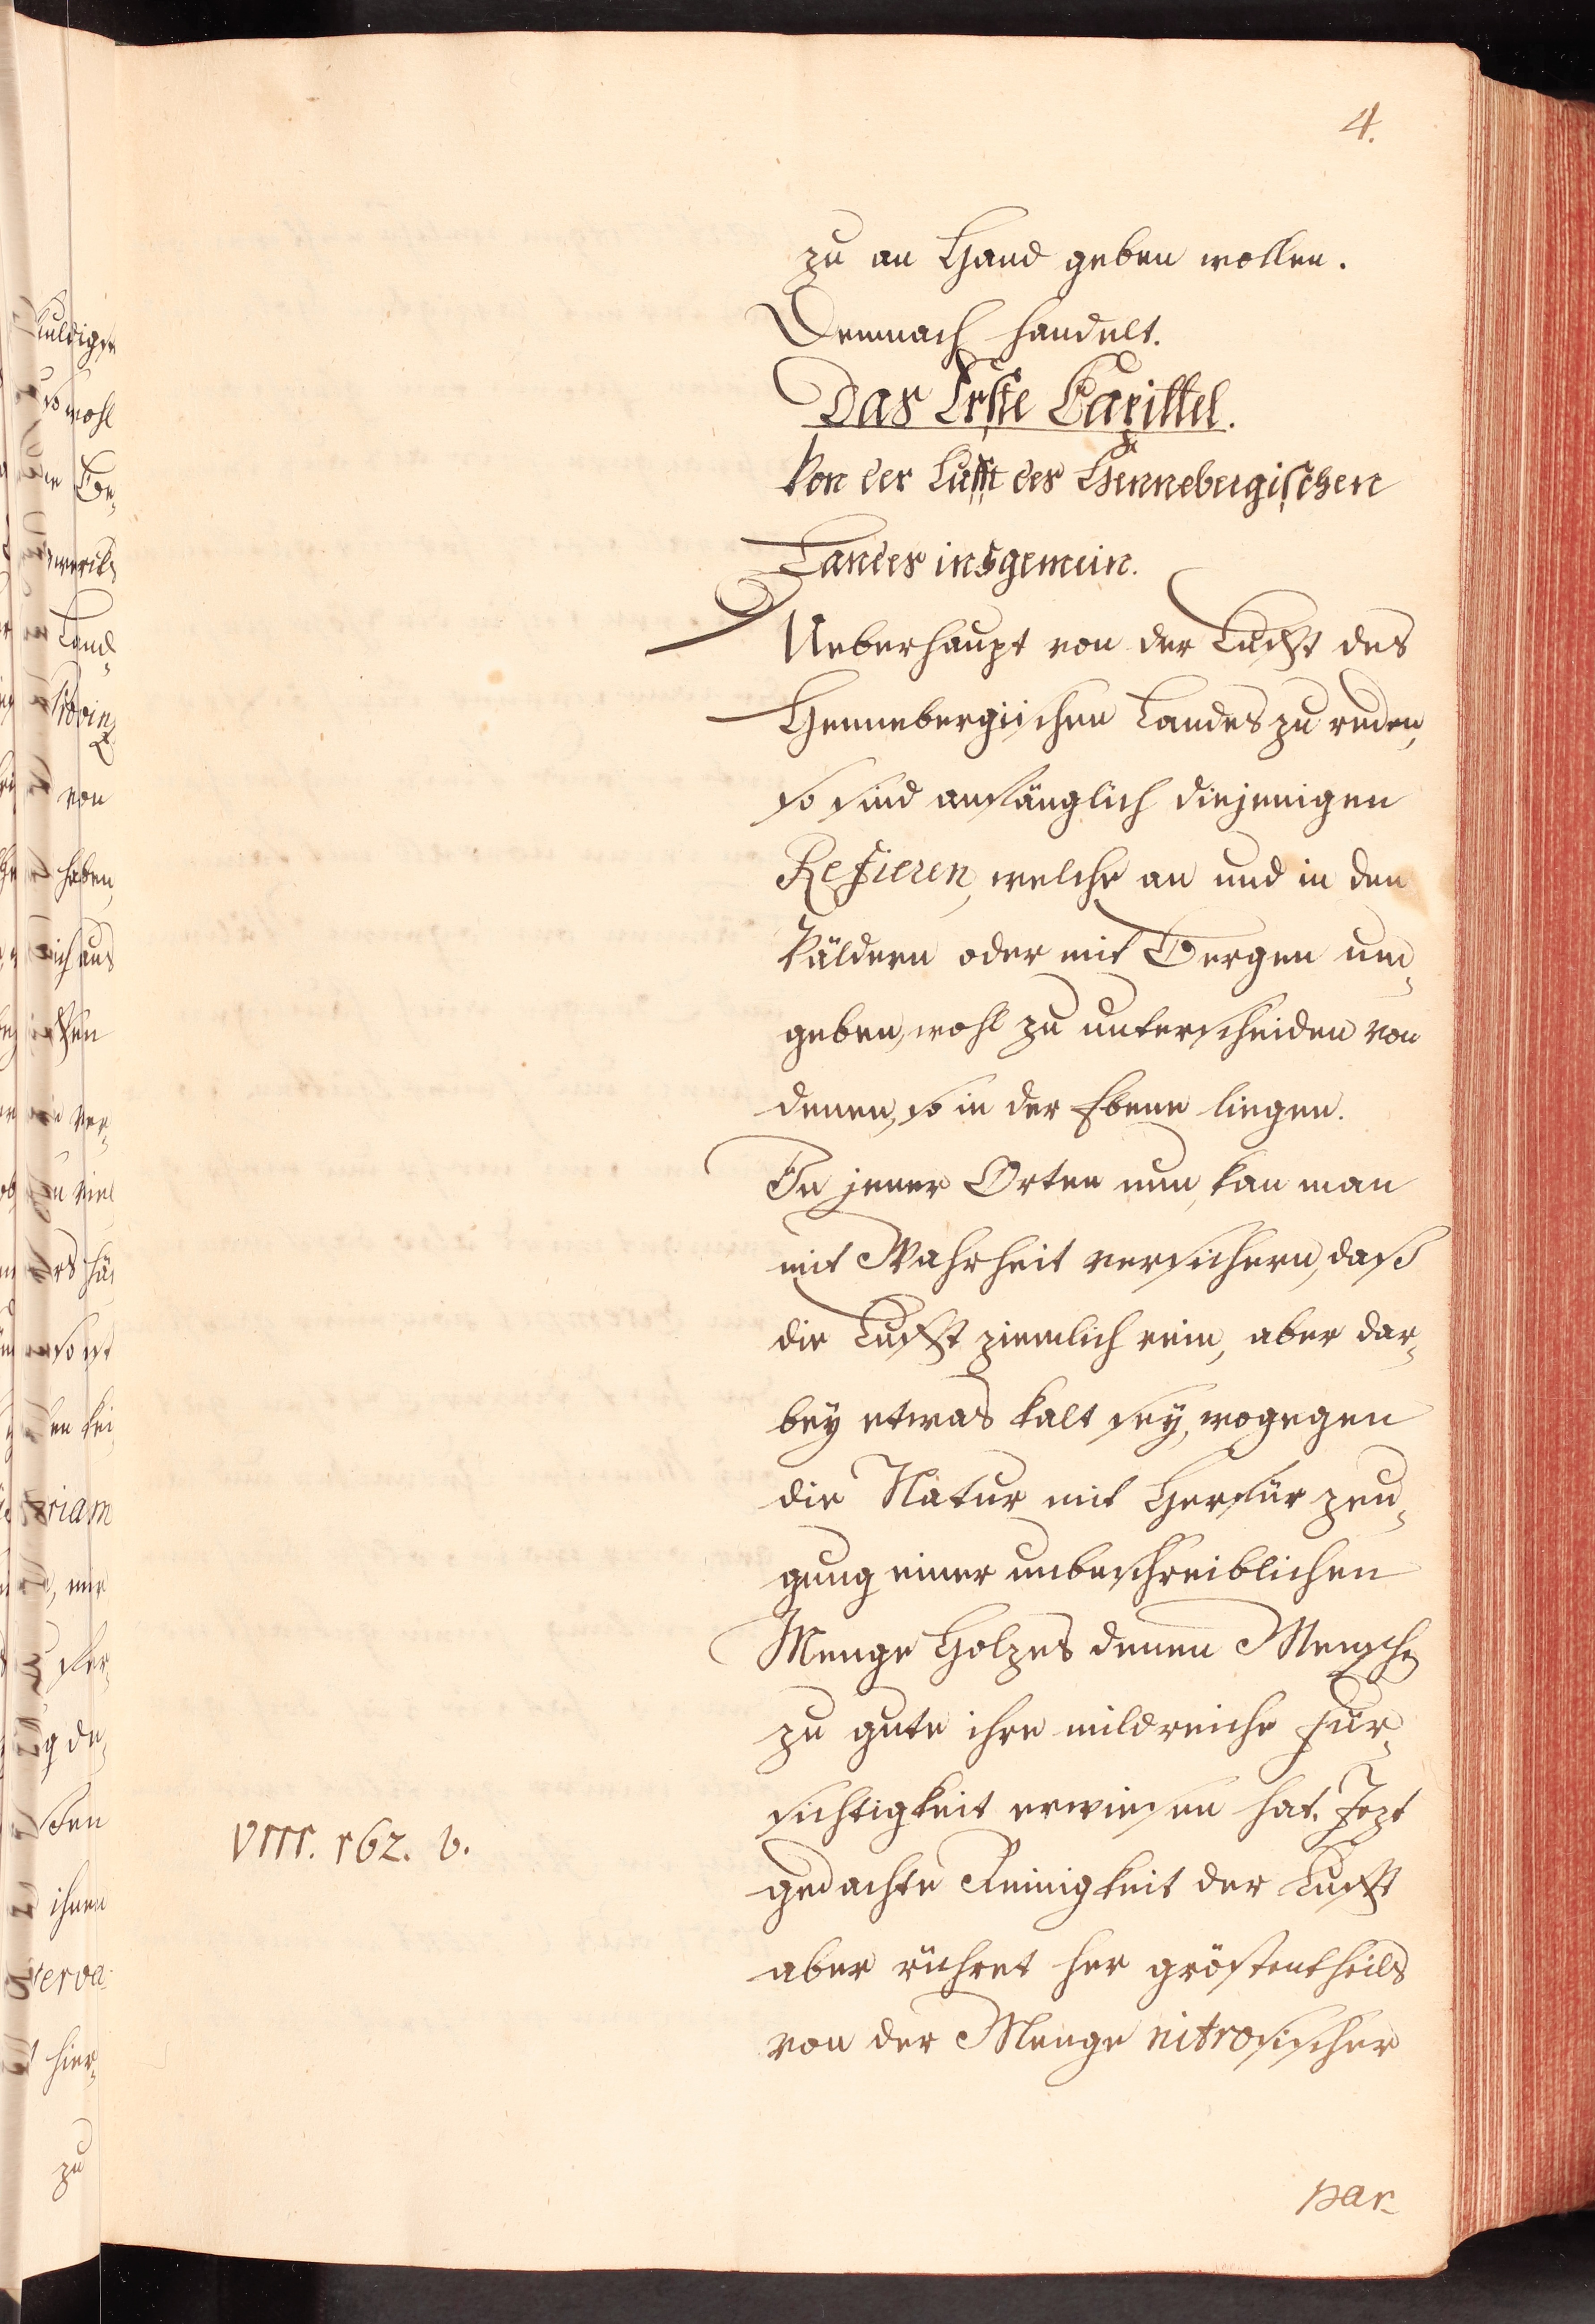 4.
zu an Hand geben wollen.
Demnach handelt.
Das Erste Capittel.
Von der Lufft des Hennebergischen
Landes insgemein.
Ueberhaupt von der Lufft des
Hennebergischen Landes zu reden,
so sind anfänglich diejenigen
Refieren, welche an und in den
Wäldern oder mit Bergen um„
geben, wohl zu unterscheiden von
denen, so in der Ebene liegen.
In jener Orten nun, kan man
mit Wahrheit versichern, daß
die Lufft ziemlich rein, aber dar„
bey etwas kalt sey, wogegen
die Natur mit Herfür zeu„
gung einer unbeschreiblichen
Menge Holzes denen Menschen
zu gute ihre mildreiche Für„
sichtigkeit erwiesen hat. Jezt
gedachte Reinigkeit der Lufft
aber rühret her gröstentheils
von der Menge nitrosischer
par-
VIII. 162. b.